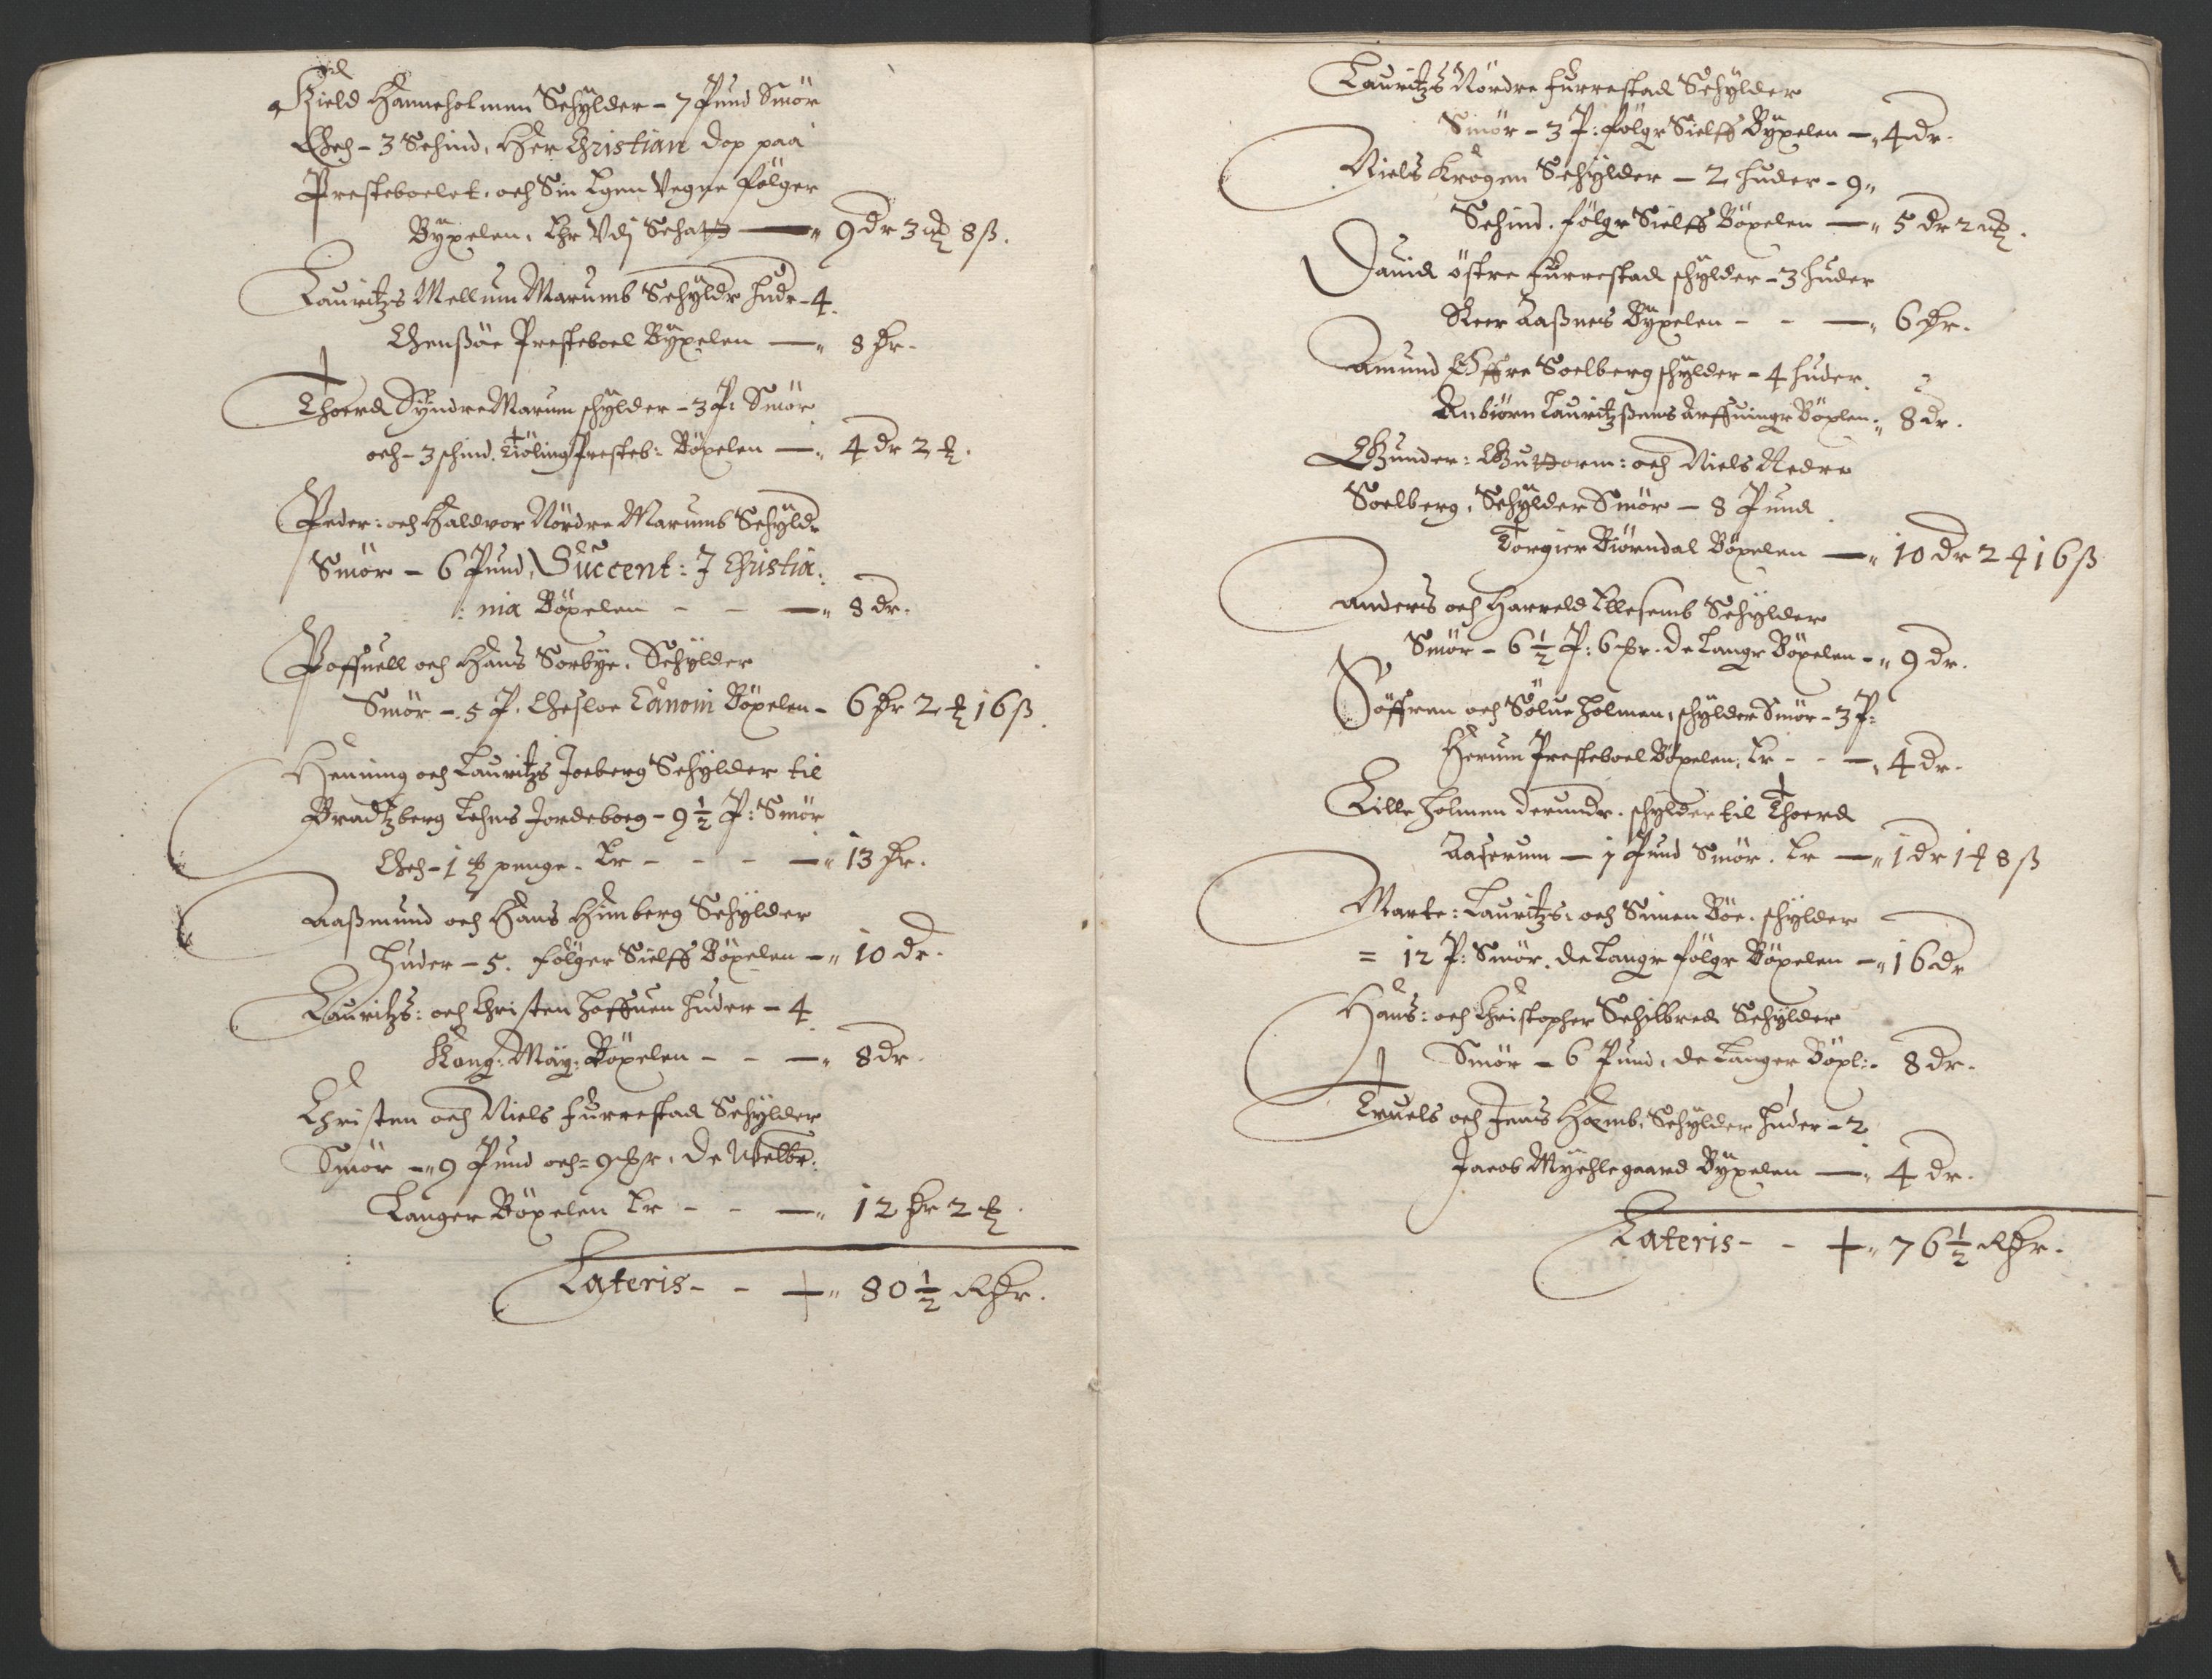 Kield Hanneholmen Schÿlder - 7 Pund Smör
Och - 3 Schind, Her Christian Dop paa
Presteboelet, och Sin Egen Vegne fölger
Bÿxelen, Ehr Vdj Schatt — 9 dr 3 ort 8 ß.
Lauritzs Mellum Marumb Schÿldr hudr - 4.
Thensöe Presteboel Bÿxelen — 8 dr.
Thoerd Sÿndre Marum schÿlder - 3 P: Smör
och - 3 schind. Tiöling Presteb: Böxelen — 4 dr 2 ort.
Peder: och Haldvor Nördre Marumb Schÿldr
Smör - 6 Pund, Succent: J Christia:
: nia Böxelen - - — 8 dr.
Poffuell och Hans Sorbÿe. Schÿlder
Smör - 5 P. Obsloe Canoni Böxelen - 6 dr 2 ort 16 ß.
Henning och Lauritzs Joeberg Schÿlder til
Bradtzberg Lehns Jordeboeg - 9 ½ P: Smör
Och - 1 ort penge. Er - - - — 13 dr.
Aaßmund och Hans Himberg Schÿlder
Huder - 5. fölger Sielff Böxelen — 10 dr.
Lauritzs: och Christen Hoffuen huder - 4
Kong: Maÿ: Böxelen - - — 8 dr.
Christen och Niels Furrestad Schÿlder
Smör - 9 Pund och = 9 , De Welbr:
Langer Böxelen Er - - — 12 dr 2 ort.
Lateris - - 80 ½ Rdr.
Lauritzs Nördre Furrestad Schÿlder
Smör - 3 P: fölgr Sielff Bÿxelen — 4 dr.
Niels Krogen Schÿlder - 2 huder - 9
Schind. fölgr Sielff Böxelen — 5 dr 2 ort.
Dauid östre Furrestad schÿlder - 3 huder
Peer Aaßnes Bÿxelen - - — 6 dr.
Amund Öffre Soelberg schÿlder - 4 huder.
Anbiörn Lauritzßens Arffuingr Böxlen 8 dr.
Gunder: Guttorm: och Niels Nedre
Soelberg, Schÿlder Smör - 8 Pund
Torgier Biörndal Böxelen — 10 dr 2 ort 16 ß
Anders och Harreld Ellefsemb Schÿlder
Smör - 6 ½ P: 6 . De Langr Böxelen - 9 dr.
Söffren och Solue Holmen, schÿlder Smör - 3 P:
Herum Presteboel Böxelen, Er - - — 4 dr.
Lille Holmen derundr. schÿlder til Thoerd
Aaserum - 1 Pund Smör. Er — 1 dr 1 ort 8 ß
Marte: Lauritzs: och Simen Böe. schÿlder
= 12 P: Smör. De Langr fölgr Böxelen — 16 dr
Hans: och Christopher Schilbred Schÿlder
Smör - 6 Pund, De Langer Böxl: - 8 dr.
Truels och Jens Hæmb. Schÿlder huder - 2
Jacob Mÿchlegaard Bÿxelen — 4 dr.
Lateris - - 76 ½ Rdr.